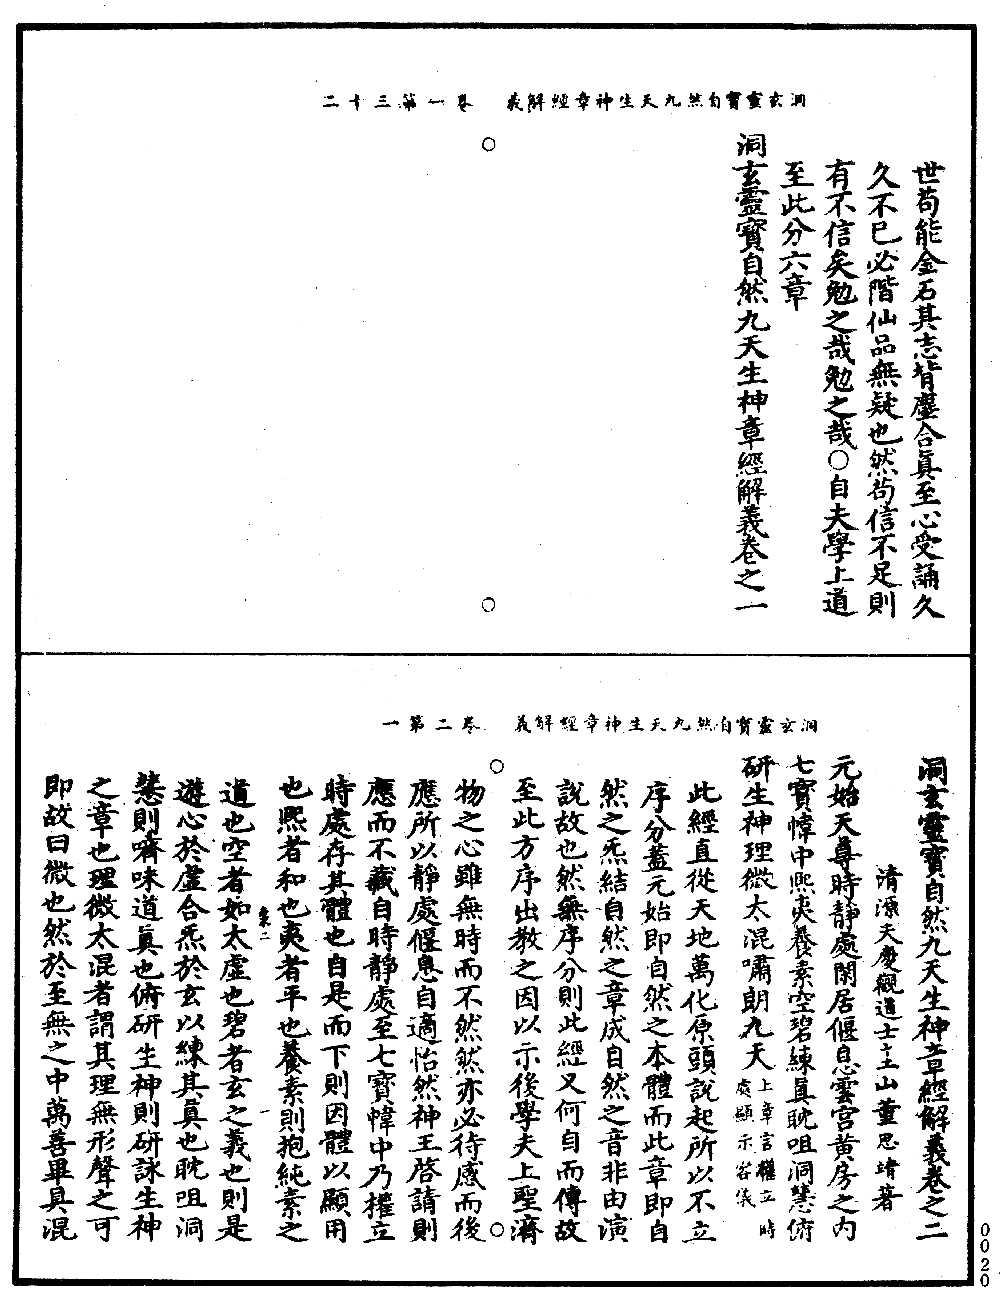 洞玄靈寶自然九天生神章經解義　卷一第三十二
世苟能金石其志背塵合眞至心受誦久
久不已必階仙品無疑也然苟信不足則
有不信矣勉之哉勉之哉○自夫學上道
至此分六章
洞玄靈寶自然九天生神章經解義卷之一
洞玄靈寶自然九天生神章經解義　卷二第一
洞玄靈寶自然九天生神章經解義卷之二
清源天慶觀道士圭山董思靖著
元始天尊時靜處閑居偃息雲宮黄房之內
七寶幃中熙夷養素空碧練眞耽咀洞慧俯
研生神理微太混嘯朗九天上章言權立時處顯示容儀
此經直從天地萬化原頭說起所以不立
序分蓋元始即自然之本體而此章即自
然之炁結自然之章成自然之音非由演
說故也然無序分則此經又何自而傳故
至此方序出教之因以示後學夫上聖濟
物之心雖無時而不然然亦必待感而後
應所以靜處偃息自適怡然神王啓請則
應而不藏自時靜處至七寶幃中乃權立
時處存其體也自是而下則因體以顯用
也熙者和也夷者平也養素則抱純素之
道也空者如太虛也碧者玄之義也則是
遊心於虛合炁於玄以練其眞也耽咀洞
慧則嚌味道眞也俯研生神則研詠生神
之章也理微太混者謂其理無形聲之可
即故曰微也然於至無之中萬善畢具混
0020